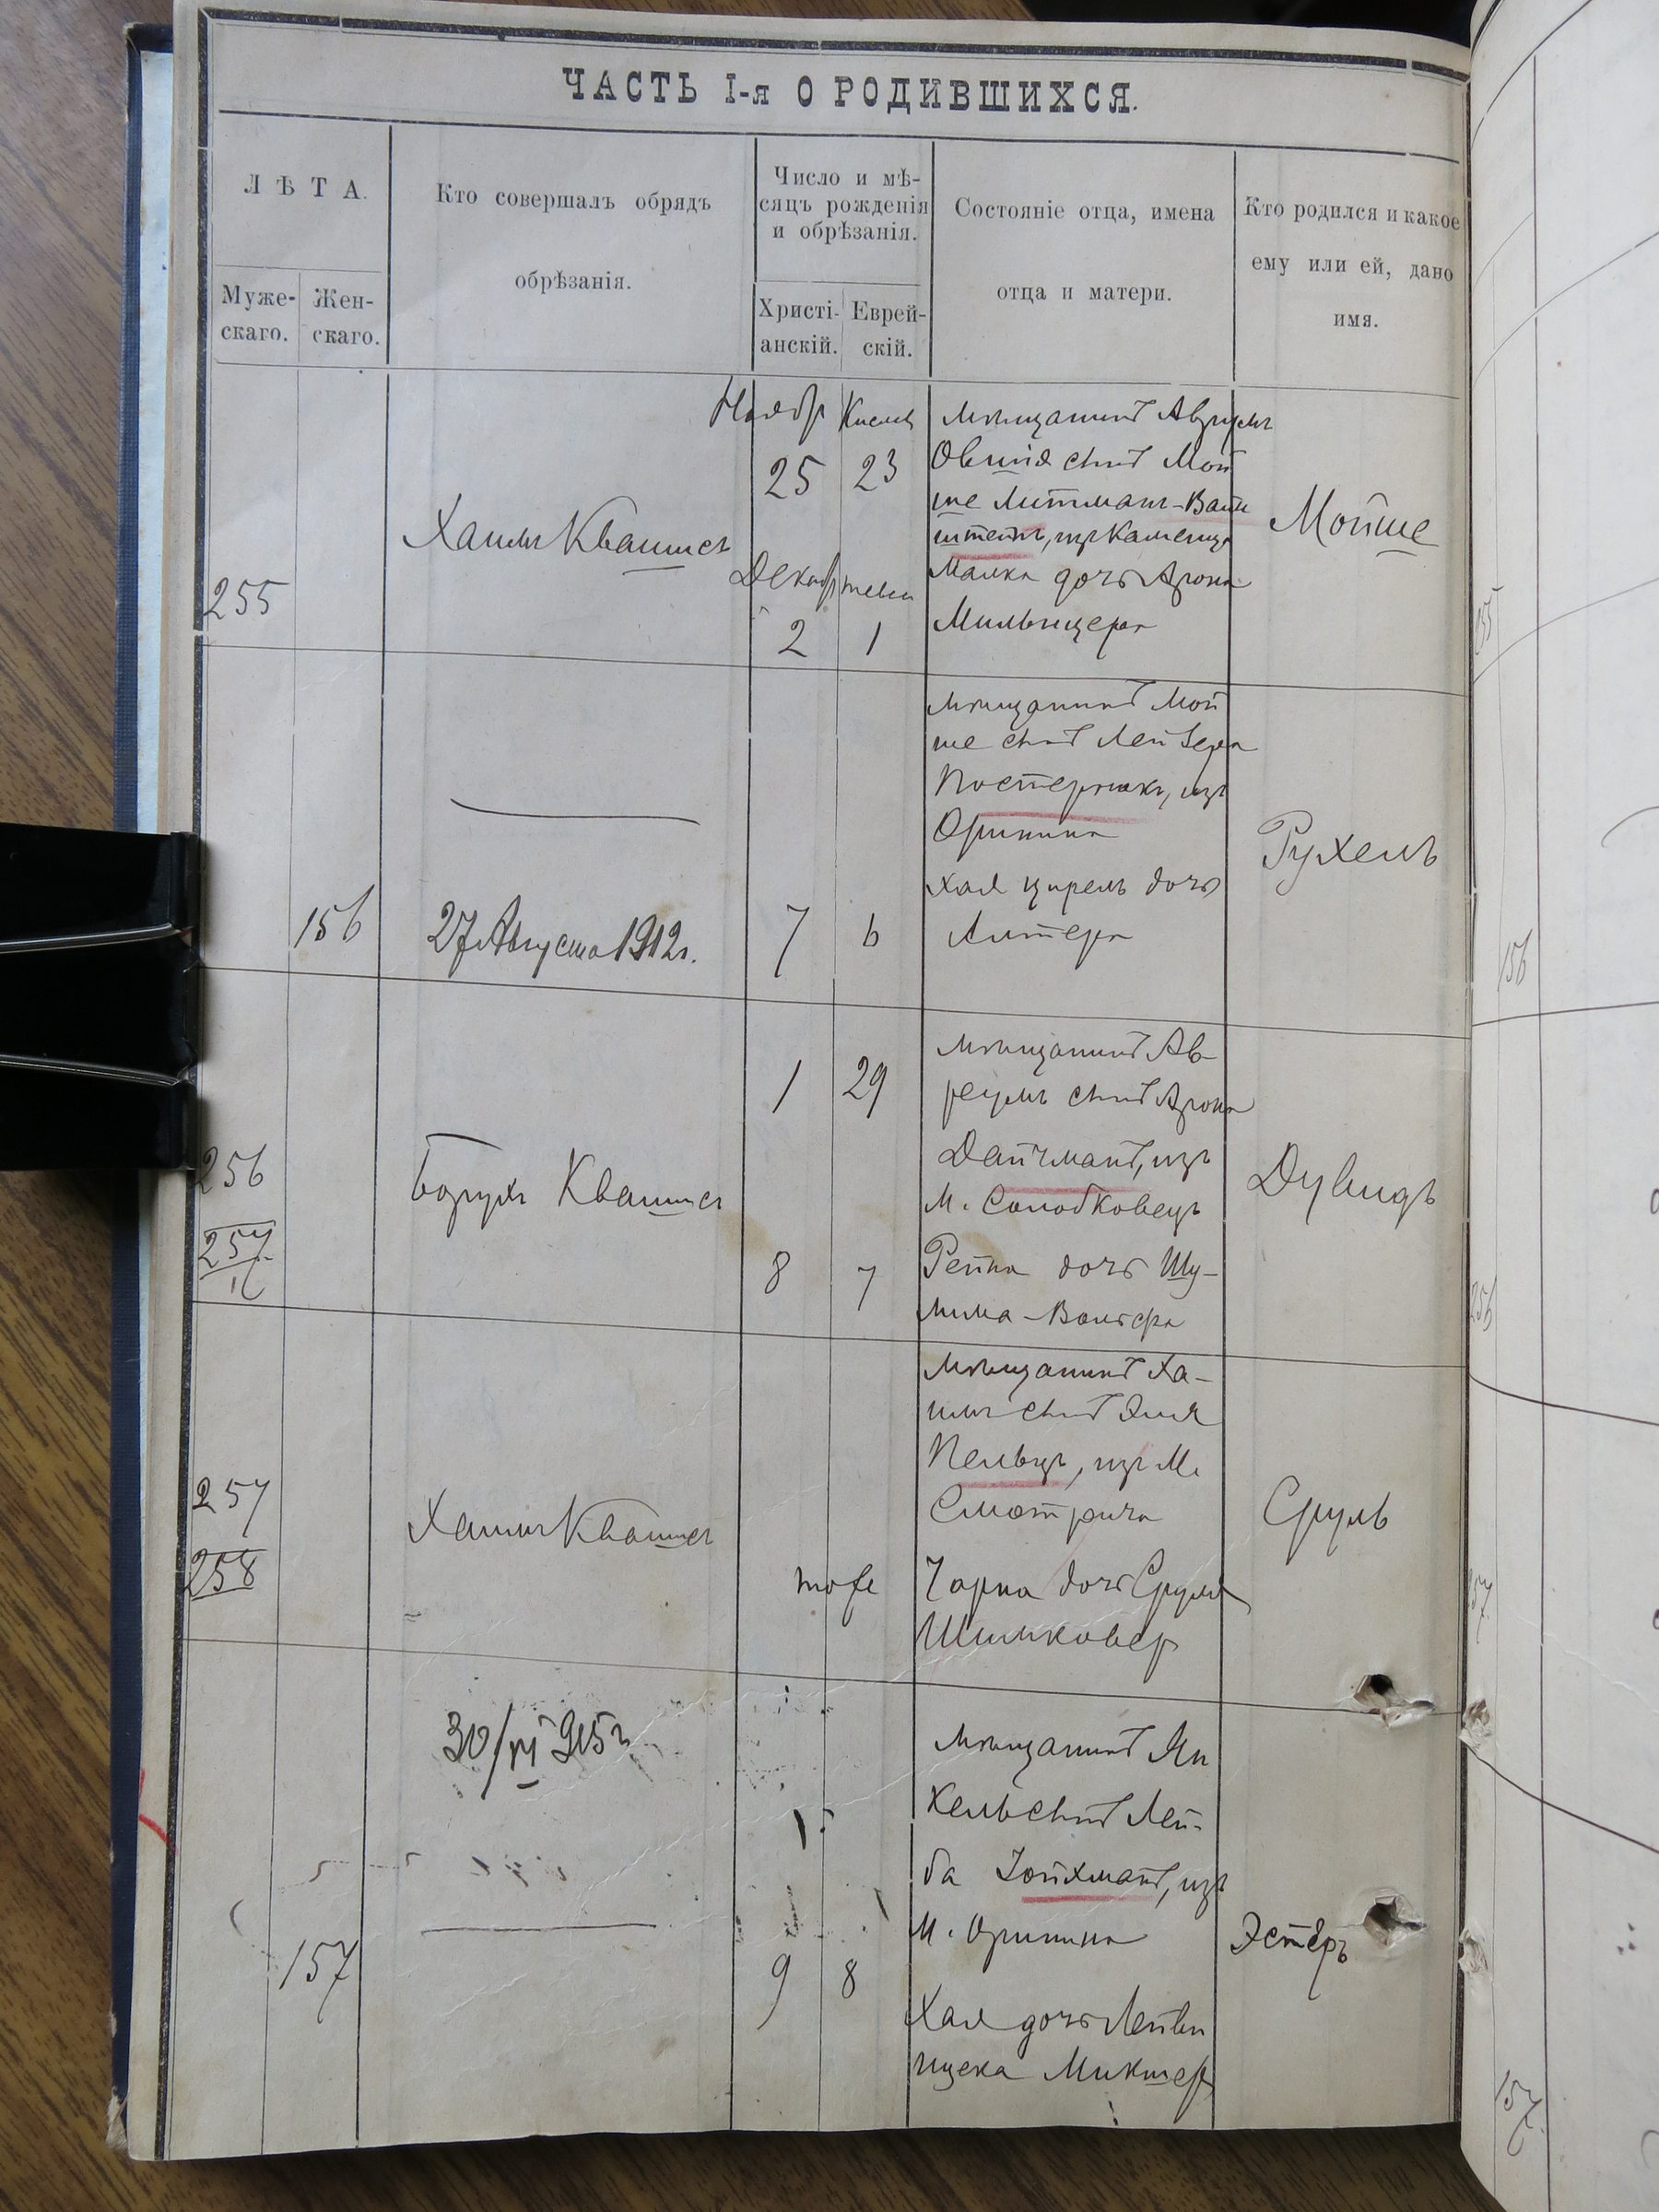 ЧАСТЬ I-я О РОДИВШИХСЯ.
ЛѢТА.
Муже-
скаго.
Жен-
скаго.
Кто совершалъ обрядъ
обрѣзанія.
Число и мѣ-
сяцъ рожденія
и обрѣзанія.
Христі-
анскій.
Еврей-
скій.
Состояніе отца, имена
отца и матери.
Кто родился и какое
ему или ей, дано
имя.
255
Хаимъ Квашисъ
Ноябр Кислев
25 23
Декабр тевел
2 1
мѣщанинъ Аврумъ
Овшія сынъ Мой
ше Литманъ-Вайн
штейнъ, изъ Каменца
Малка дочь Арона
Мильницера
Мойше
156
27 Августа 1912 г.
7 6
мѣщанинъ Мой
ше сынъ Лейзера
Постернакъ, изъ
Оринина
Хая Цирель дочь
Алтера
Рухель
256
257
Борухъ Квашисъ
1 29
8 7
мѣщанинъ Ав-
реумъ сынъ Арона
Дайчманъ, изъ
м. Солобковецъ
Рейна дочь Шу-
лима-Вольфа
Дувидъ
257
258
Хаимъ Квашисъ
тоже
мѣщанинъ Ха-
имъ сынъ Элія
Пельцъ, изъ м.
Смотрича
Чарна дочь Сруля
Шимковер
Сруль
157
30/VI 915 г
9 8
мѣщанинъ Ян
кель сынъ Лей-
ба Зойхманъ, изъ
м. Оринина
Хая дочь Лейви
Ицека Микшер
Эстеръ
155
156
256
157
157